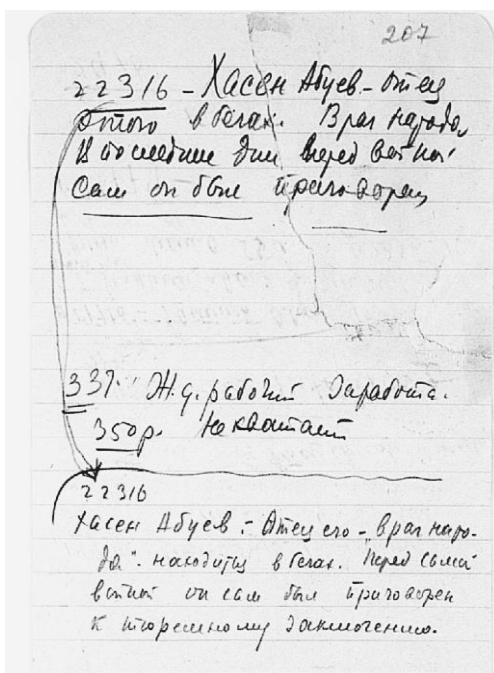 207
22316 - Хасен Абуев - Отец
этого в бегах. Враг народа,
В последние дни перед войной
Сам он был приговорен
337. Ж.д. рабочий Заработа.
350 р. Не хватает
22316
Хасен Абуев :- Отец его - "враг наро-
да". находится в бегах. Перед самой
войной он сам был приговорен
к тюремному заключению.